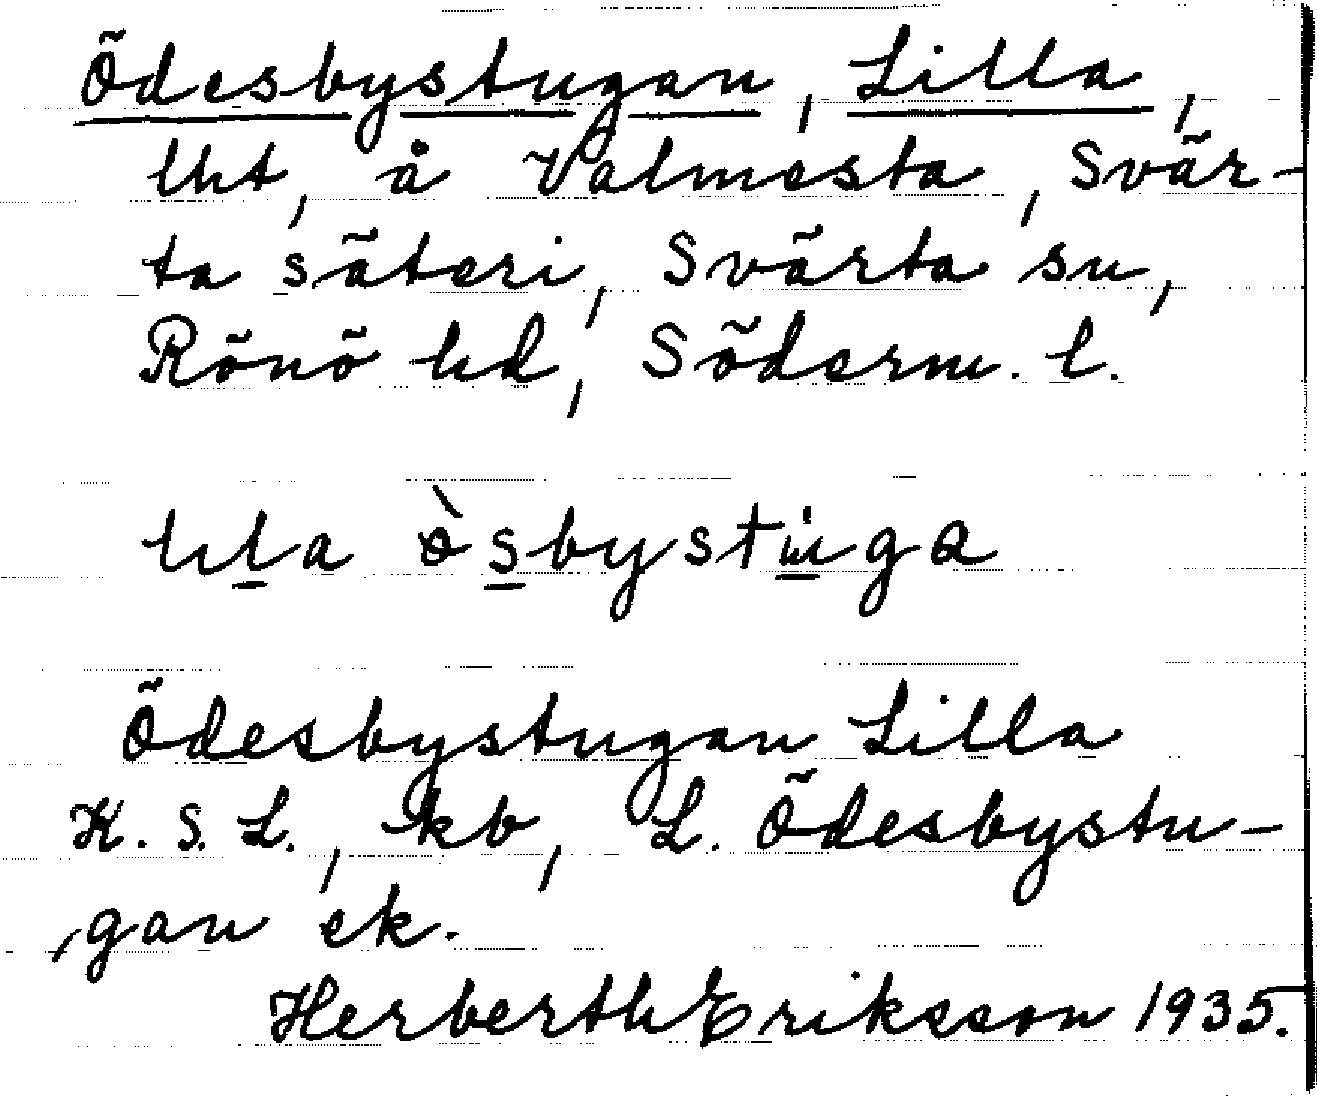 Ödesbystugan, Lilla,
lht, å Valmesta, Svär-
ta säteri, Svärta sn,
Rönö hd, Söderm. l.
lila òsbystuga
Ödesbystugan Lilla
K. S. L., kb, L. Ödesbystu-
gan ek.
Herberth Eriksson 1935.